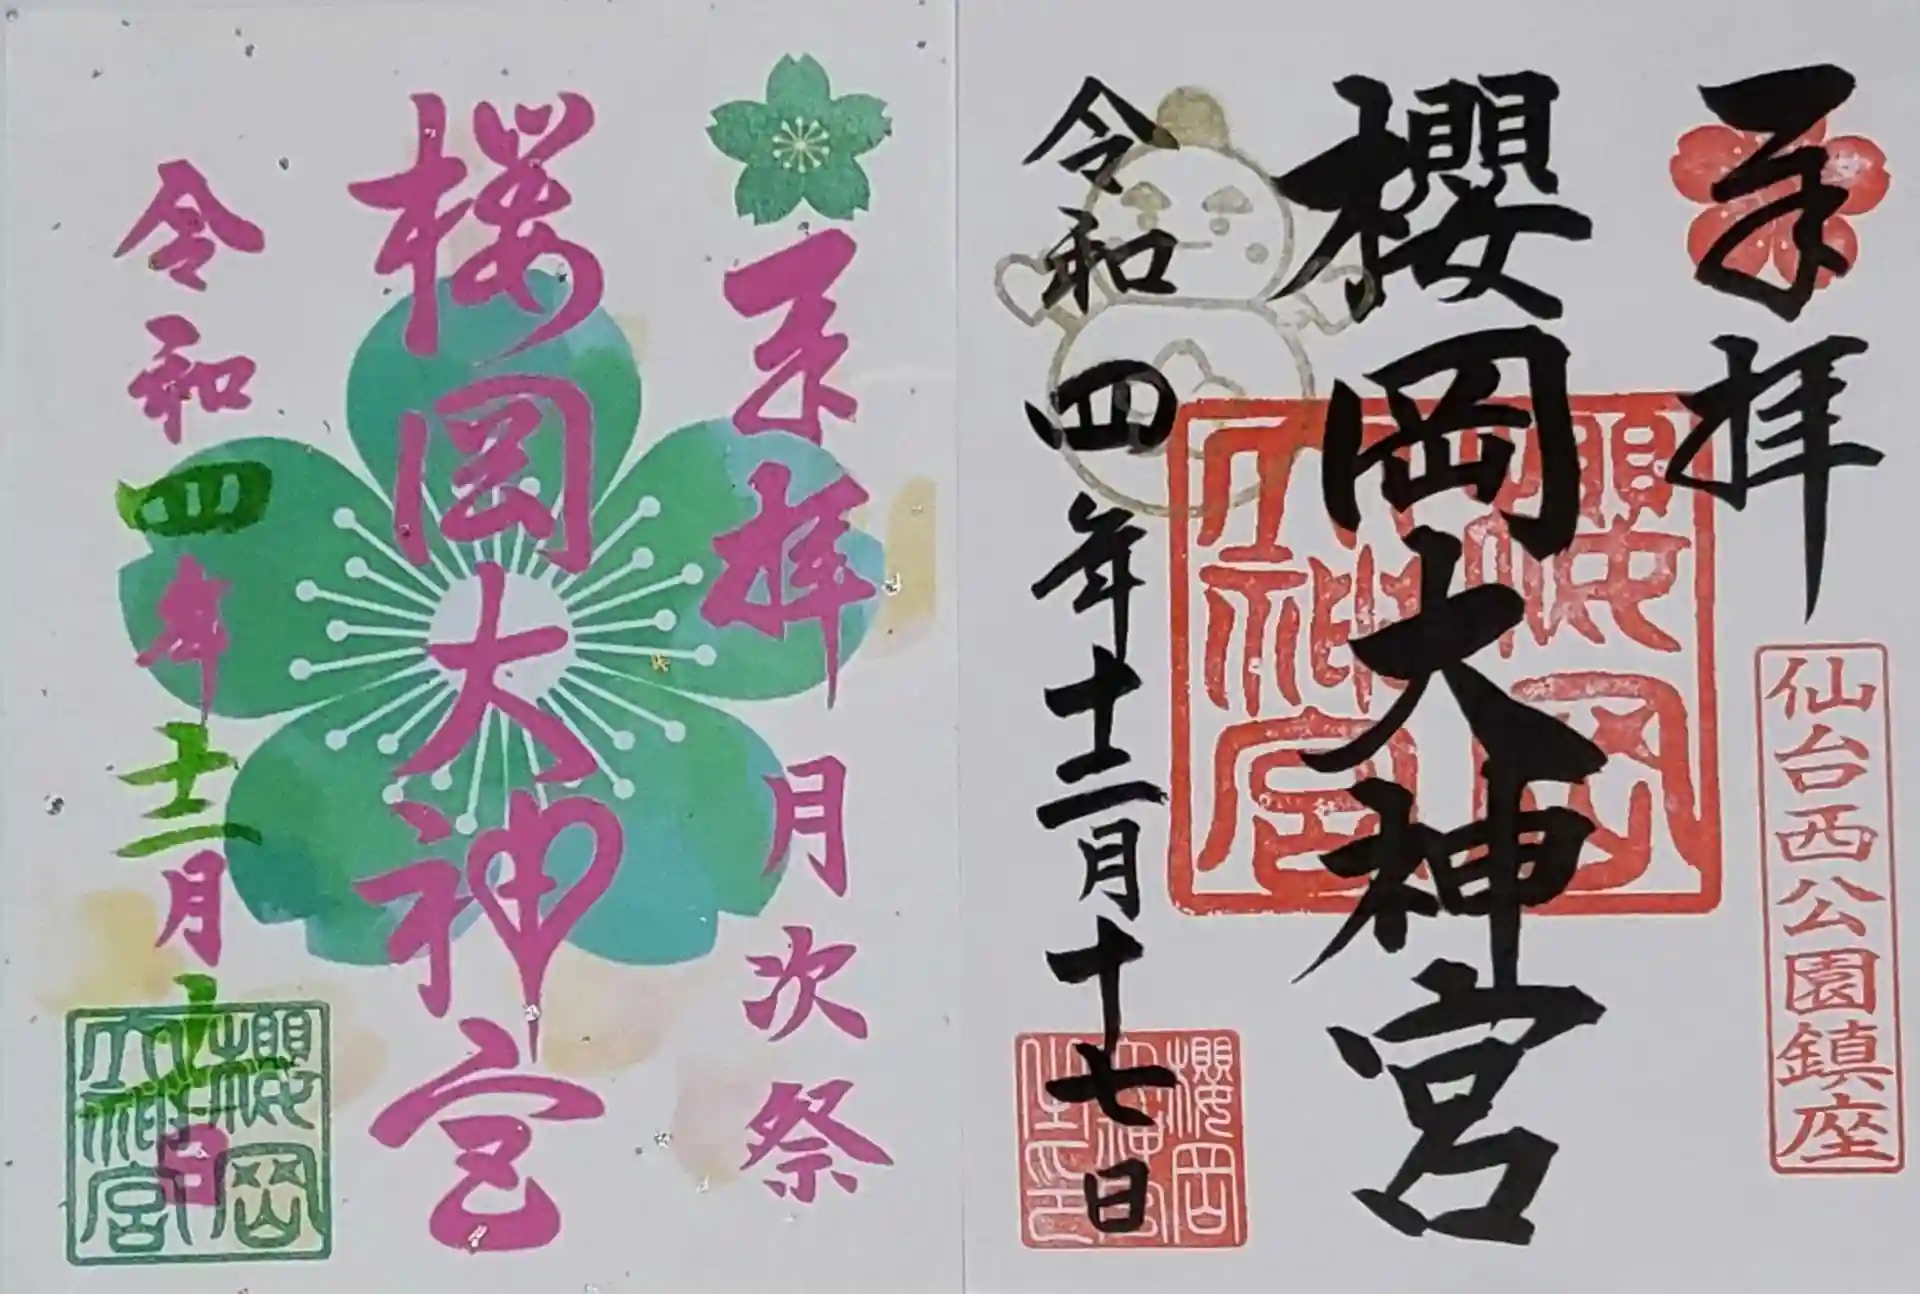 奉拝
仙台西公園鎮座
櫻岡大神宮
櫻岡
大神宮
令和四年十二月十七日
奉拝 月次祭
桜岡大神宮
令和四年十二月 日
櫻岡
大神宮